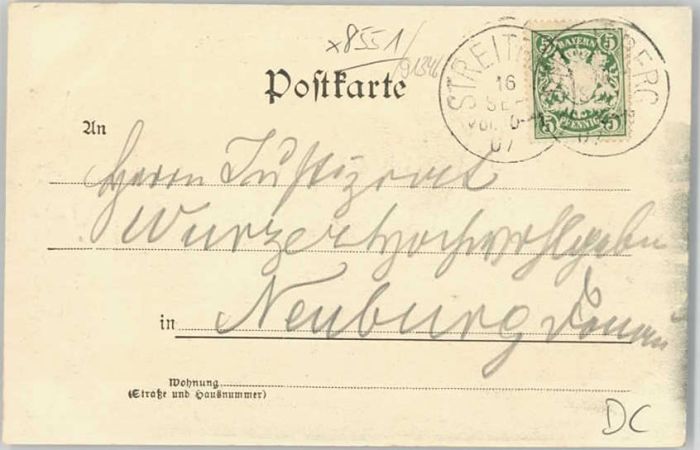 x8551/91346
Postkarte
STREITBERG
16
SEP
07
5 BAYERN 5
5 PFENNIG 5
An
Herrn Justizrat
Wurzer Hochwohlgeborn
in Neuburg Donau
Wohnung
(Straße und Hausnummer)
DC